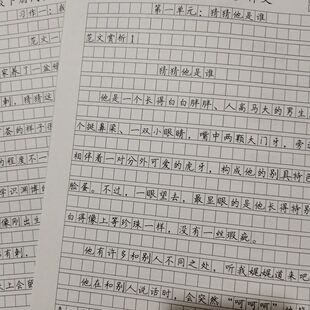 习作一：我
范文一
家养了一盆
刺，猜猜这
的样子很
的程度不一
学识渊博的
像刚出生
有刺，
上会望
第一单元：猜猜他是谁
范文赏析1
猜猜他是谁
他是一个长得白白胖胖、人高马大的男生
个挺鼻梁、一双小眼睛，嘴中两颗大门牙，旁
相伴着一对分外可爱的虎牙，构成他的别具特色
脸蛋。不过，一眼望去，最显眼的是他长得特别
白得像上等珍珠一样，没有一丝瑕疵。
他有许多和别人不同之处，听我娓娓道来吧
他在和别人说话时，会突然“呵呵呵”的